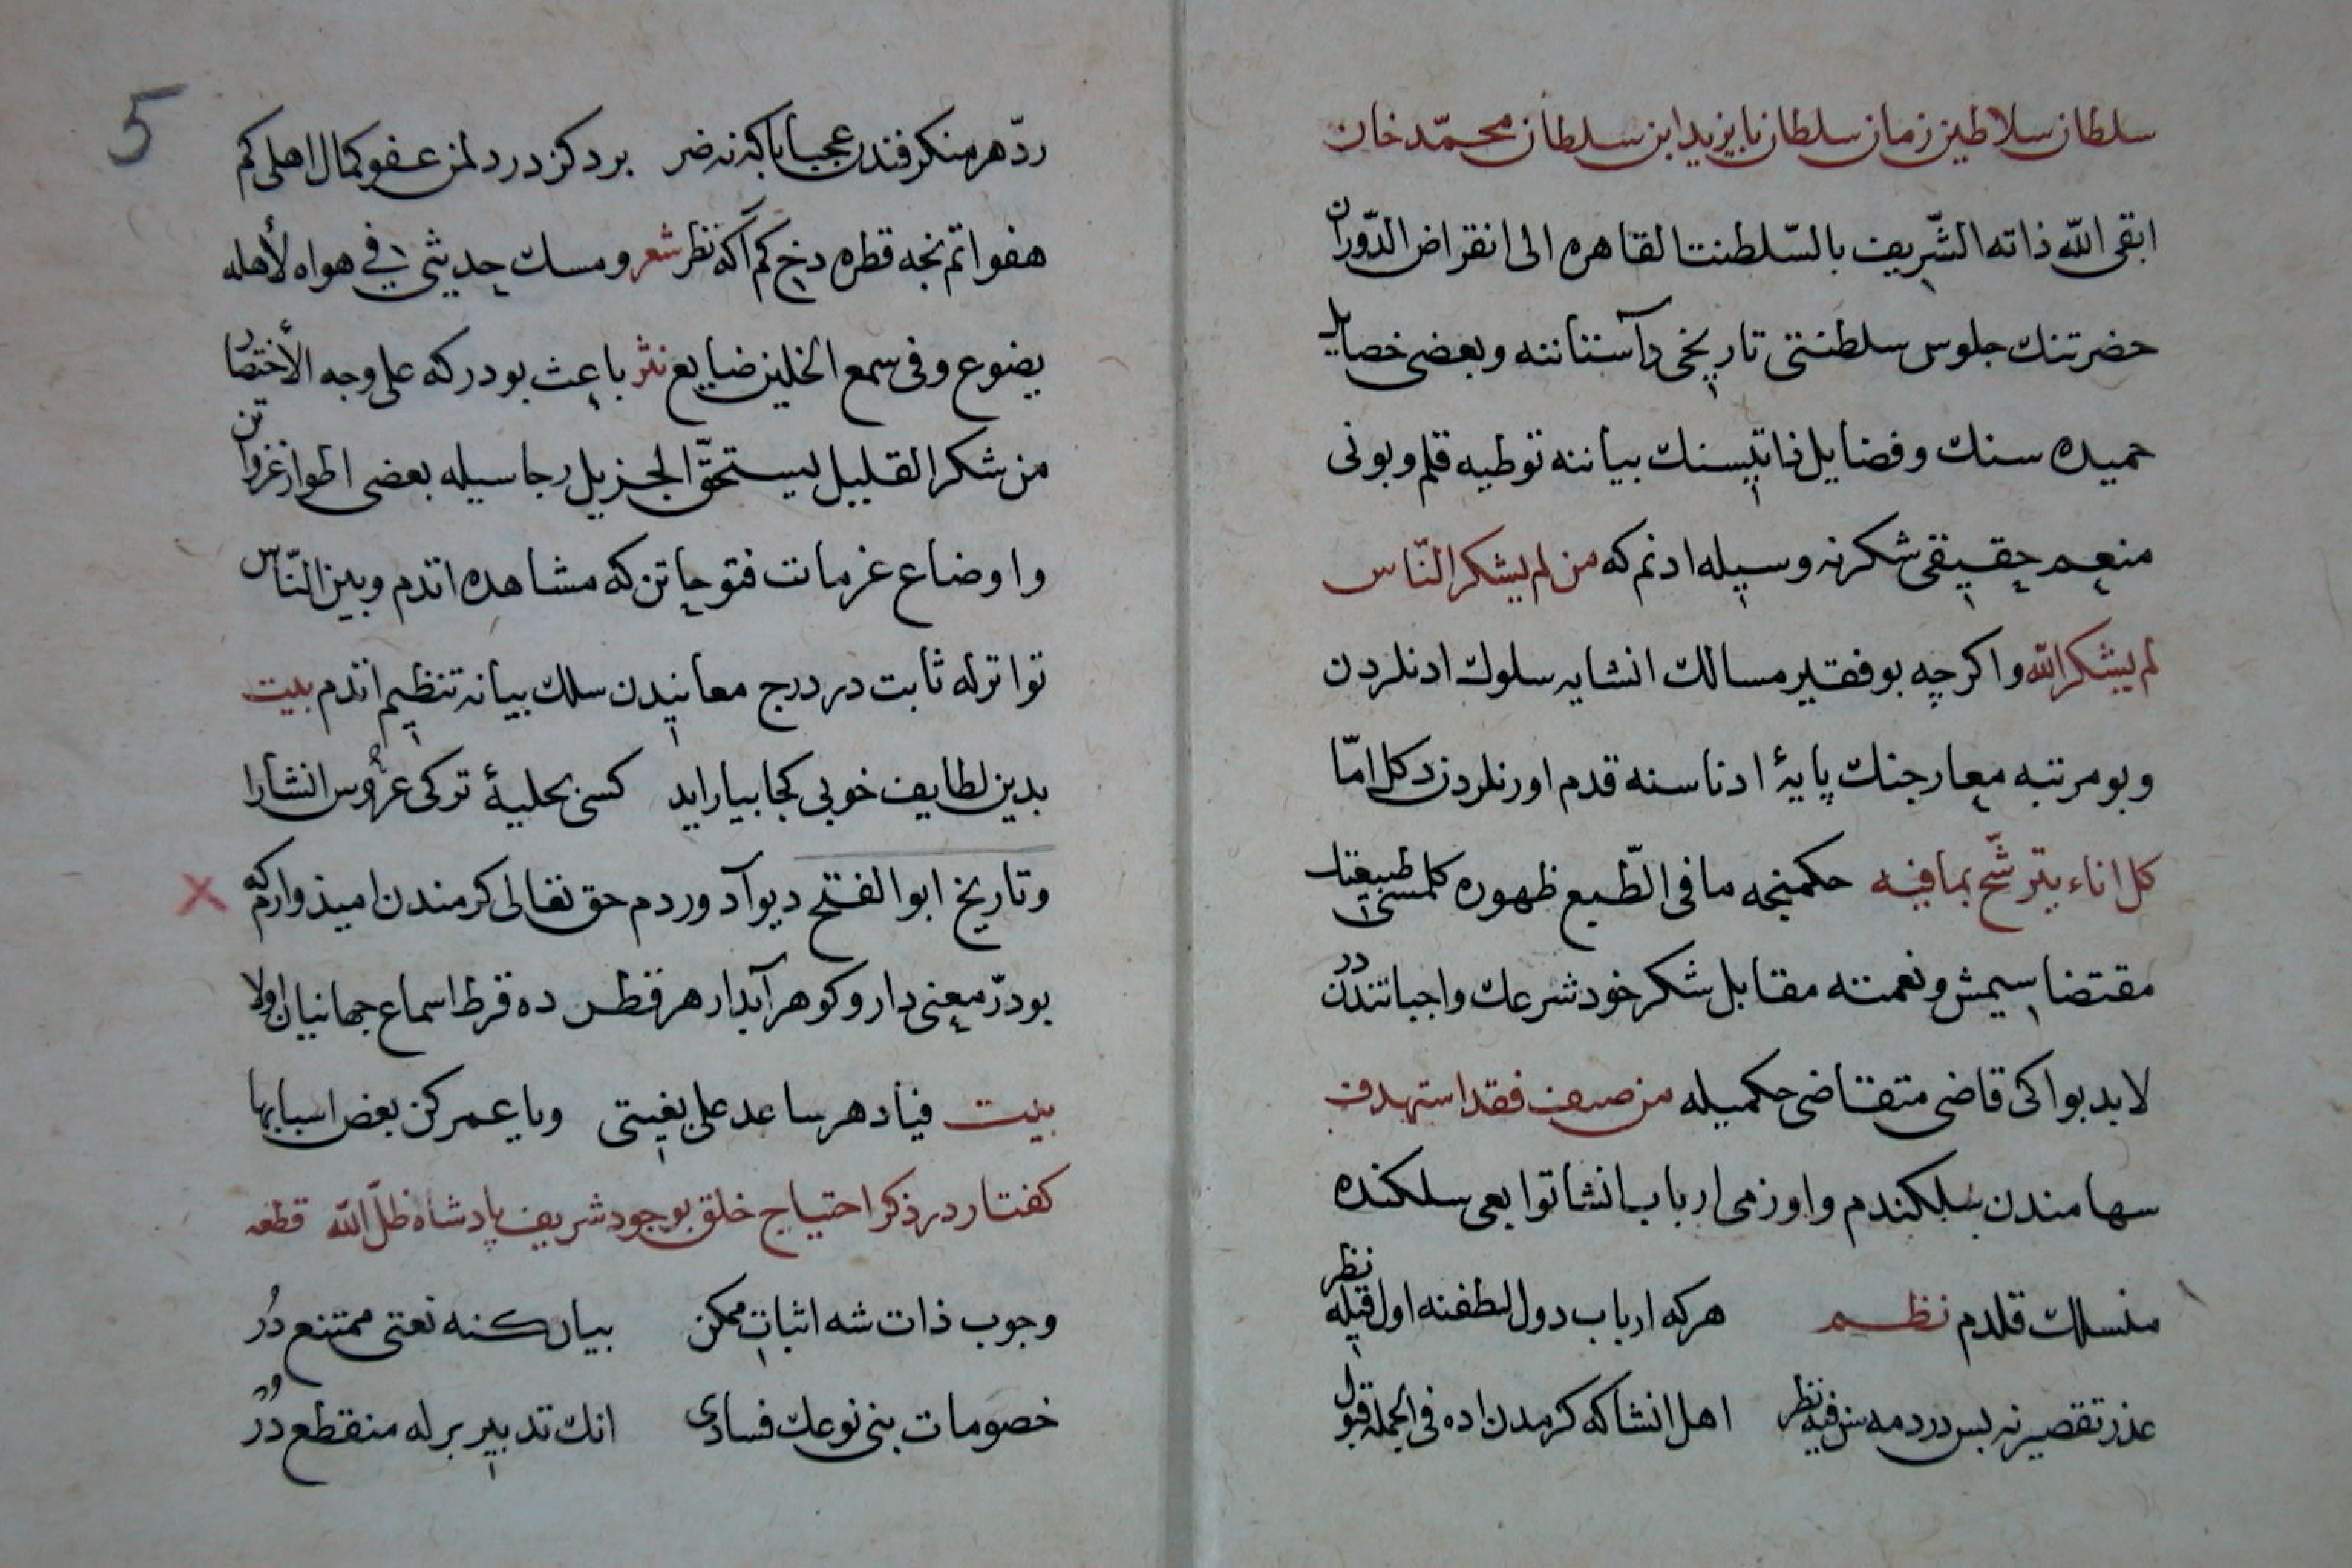 سلطان سلاطین زمان سلطان بایزید ابن سلطان محمّد خان
ابقی الله ذاته الشّریف بالسّلطنت القاهره الی انقراض الدّوران
حضرتنك جلوس سلطنتی تاریخی داستاننه وبعضی خصایل
حمیده سنك وفضایل ذاتیسنك بیاننه توطیه قلم وبونی
منعم حقیقی شکرنه وسیله ادنم که من لم یشکر النّاس
لم یشکر الله واکرچه بو فقیر مسالك انشایه سلوك ادنلردن
وبو مرتبه معارجنك پایۀ ادناسنه قدم اورنلردن دکل امّا
کل اناء یترشّح بمافیه حکمنجه ما فی الطّبع ظهوره کلمسی طبیعتك
مقتضاسیمش ونعمته مقابل شکر خود شرعك واجباتندندر
لابد بو اکی قاضی متقاضی حکمیله من صنف فقد استهدف
سهامندن سلکندم واوزمی ارباب انشا توابعی سلکنده
منسلك قلدم نظم هرکه ارباب دول لطفنه اول قیله نظر
عذر تقصیرنه بس دردمه سن قیه نظر اهل انشا که کرمدن اده فی الجمله قبول
5
ردّ هر منکر فندن عجبا باکه نه ضر بر دکز در دلمن عفو کمال اهلی کم
هفواتم نجه قطره دخی کم اکه نظر شعر ومسك حدیثی فی هواه لأهله
یضوع وفی سمع الخلین ضایع نثر باعث بودرکه علی وجه الأختصار
من شکر القلیل لیستحقّ الجزیل رجاسیله بعضی اطوار غزواتن
واوضاع غرمات فتوحاتن که مشاهده اتدم وبین النّاس
تواترله ثابت در درج معانیدن سلك بیانه تنظیم اتدم بیت
بدین لطایف خوبی کجا بیاراید کسی بحلیۀ ترکی عروس انشارا
وتاریخ ابو الفتح دیو آد وردم حق تعالی کرمندن امیذوارم که
بو درّ معنی دار وکوهر آبدار هر قطرده قرط اسماع جهانیان اولا
بیت فیا دهر ساعد علی بغیتی ویا عمر کن بعض اسبابها
کفتار در ذکر احتیاج خلق بوجود شریف پادشاه ظلّ الله قطعه
وجوب ذات شه اثبات ممکن بیان کنه نعتی ممتنع دُر
خصومات بنی نوعك فسادی انك تدبیر برله منقطع دُر